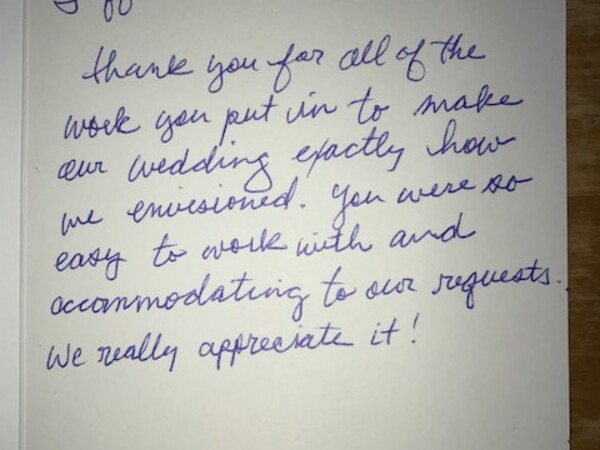 thank you for all of the
work you put in to make
our wedding exactly how
we envisioned. You were so
easy to work with and
accommodating to our requests.
We really appreciate it!